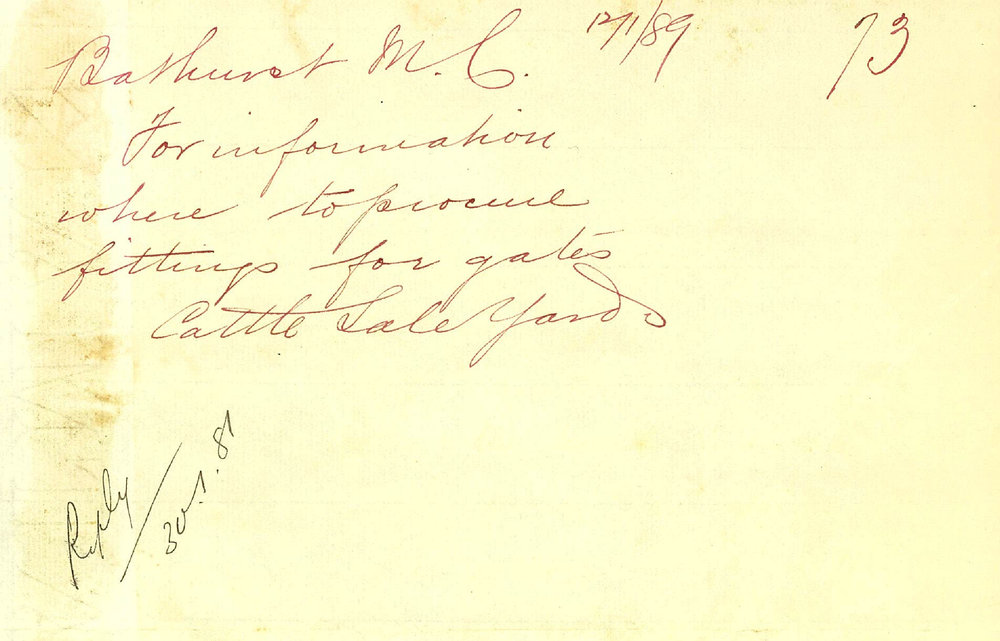 Bathurst M.C. 12/1/89 73
For information
where to procure
fittings for gates
Cattle Sale Yards
Reply
30.1.81